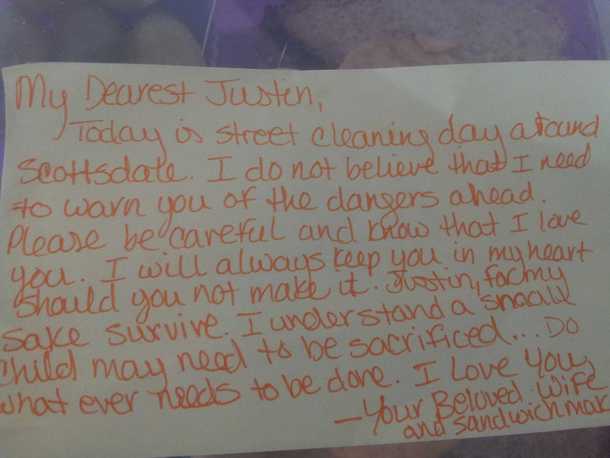 My Dearest Justin,
Today is street cleaning day around
Scottsdale. I do not believe that I need
to warn you of the dangers ahead.
Please be careful and know that I love
you. I will always keep you in my heart
should you not make it. Justin, for my
sake survive. I understand a small
child may need to be sacrificed... Do
what ever needs to be done. I Love You,
—Your Beloved Wife
and sandwich mak